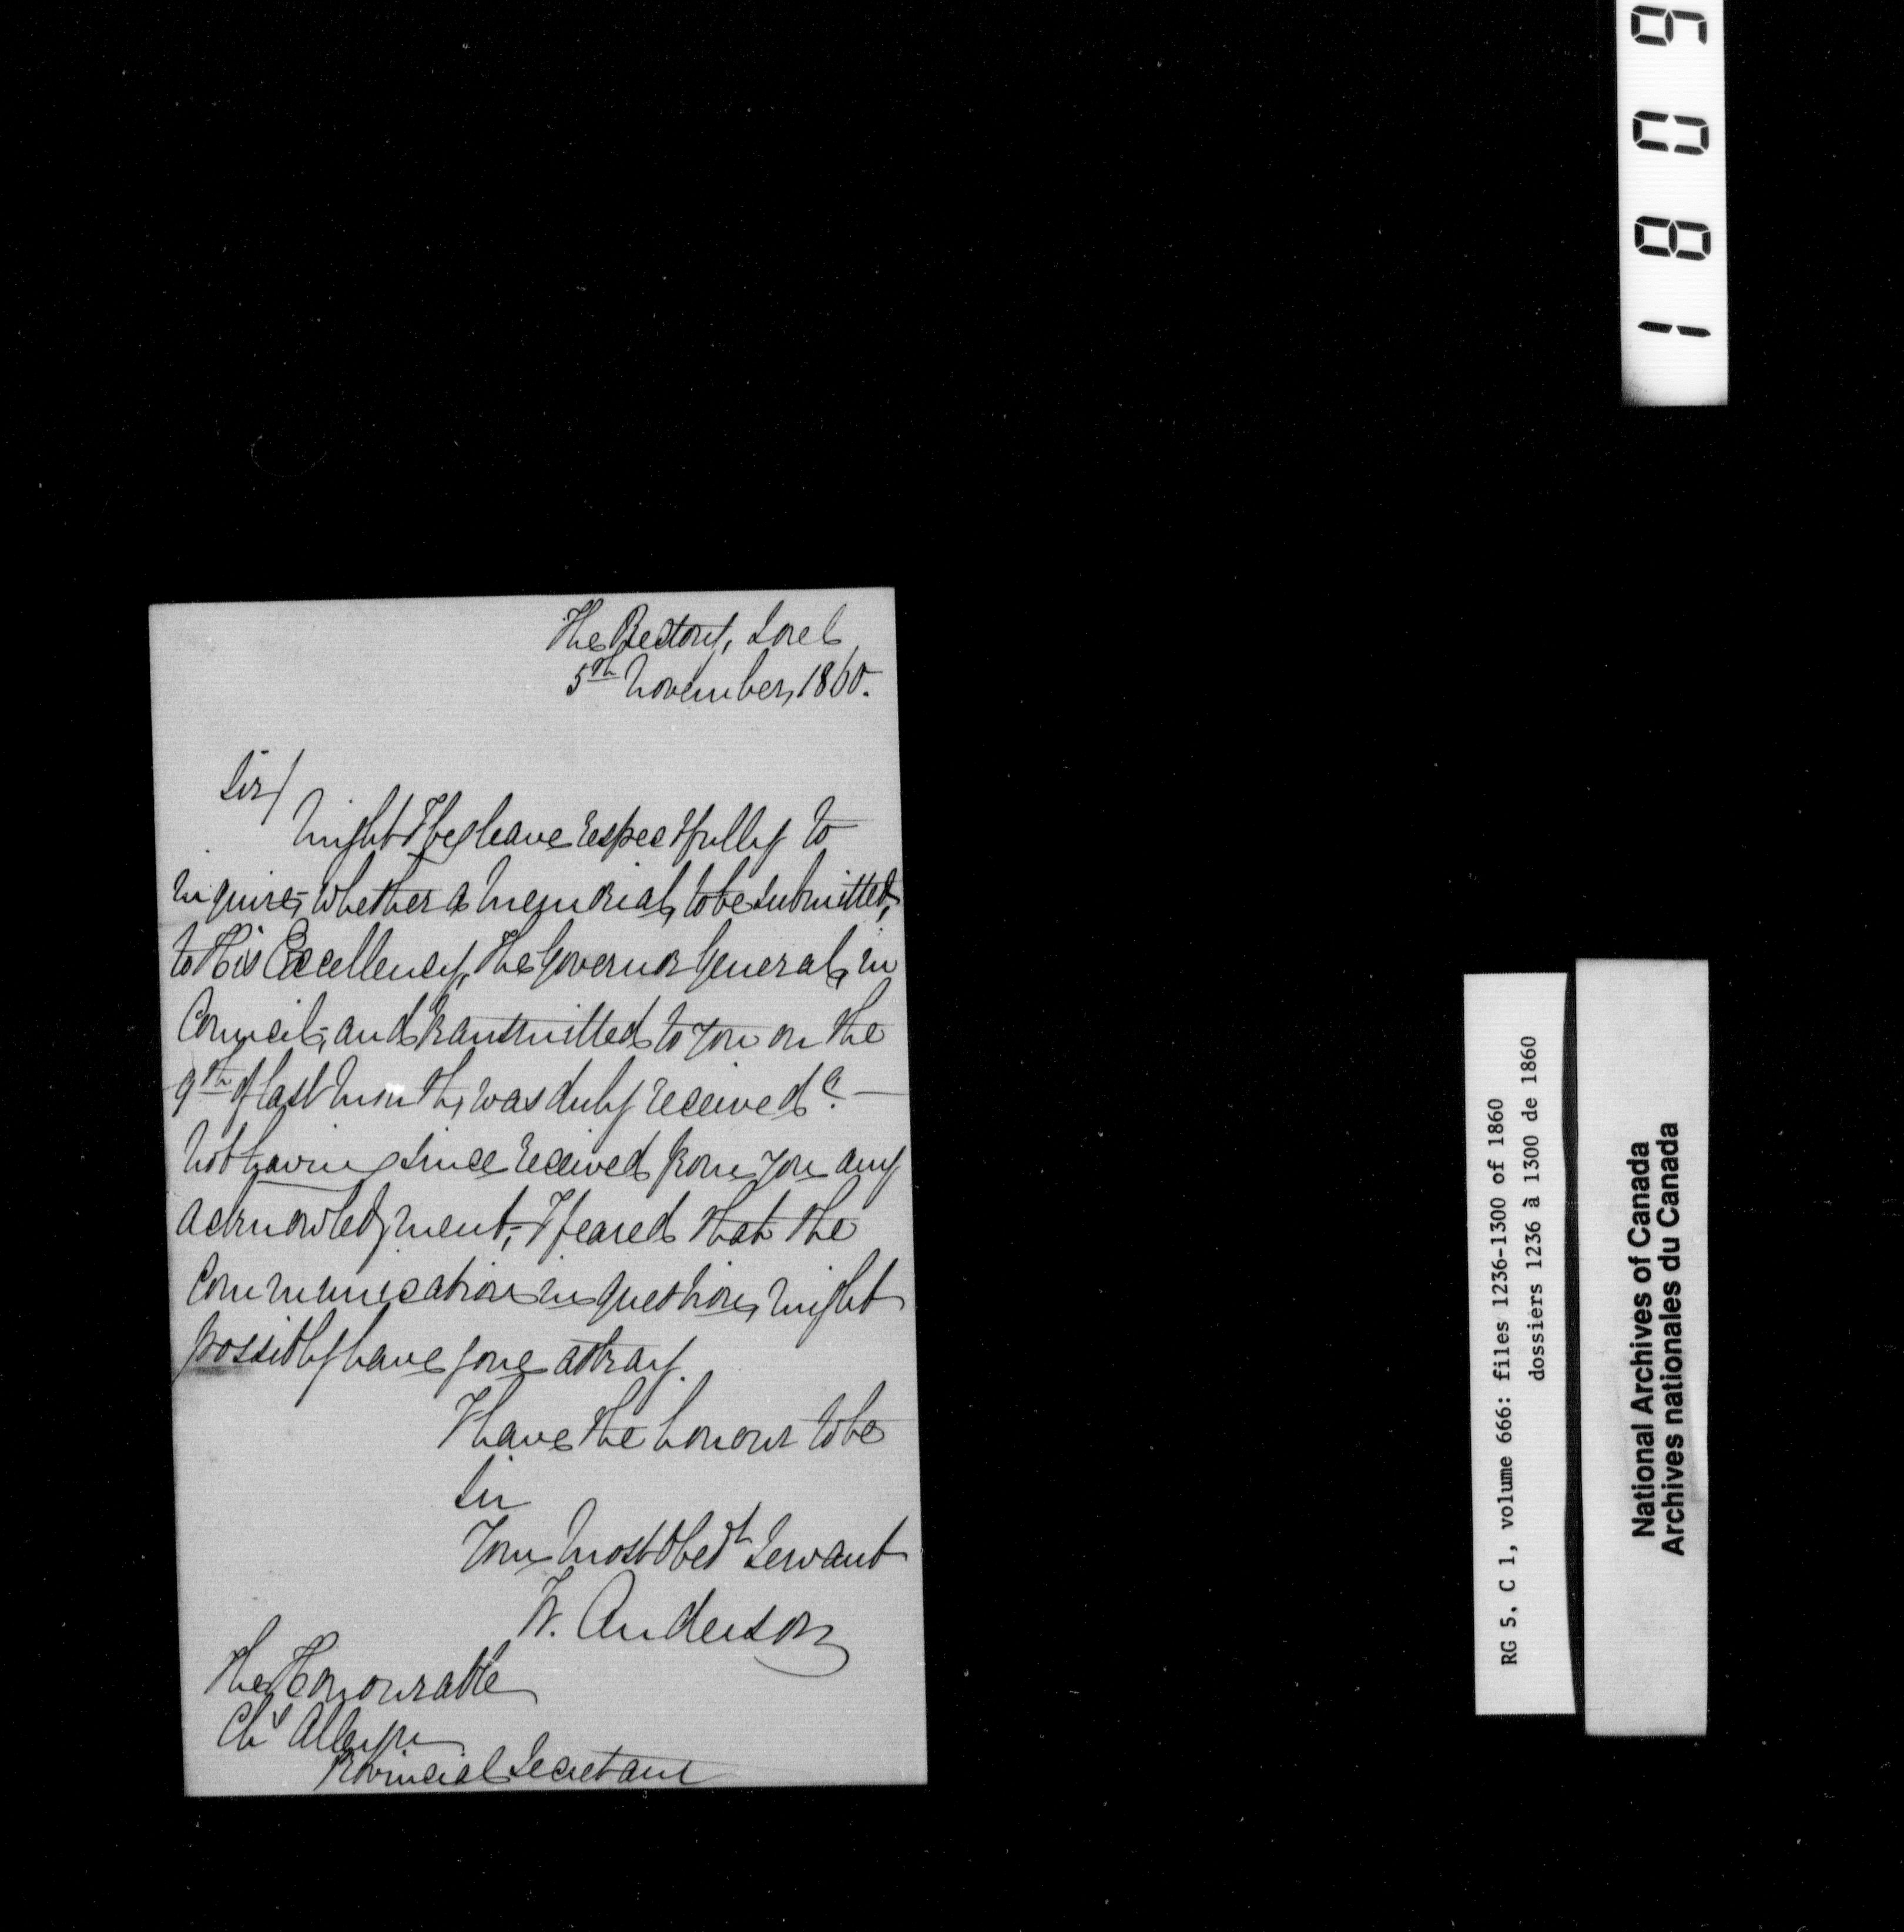 The Rectory, Sorel
5th November, 1860.
Sir/
Might I beg leave respectfully to
inquire, whether a Memorial, to be submitted,
to His Excellency, the Governor General, in
Council, and transmitted to you on the
9th of last Month, was duly received? —
Not having since received from you any
acknowledgment, I feared that the
Communication in question, might
possibly have gone astray.
I have the honour to be
Sir
Your Most Obedt Servant
W. Anderson
The Honourable
Chs Alleyn
Provincial Secretary
1809
RG 5, C 1, volume 666: files 1236-1300 of 1860
dossiers 1236 à 1300 de 1860
National Archives of Canada
Archives nationales du Canada